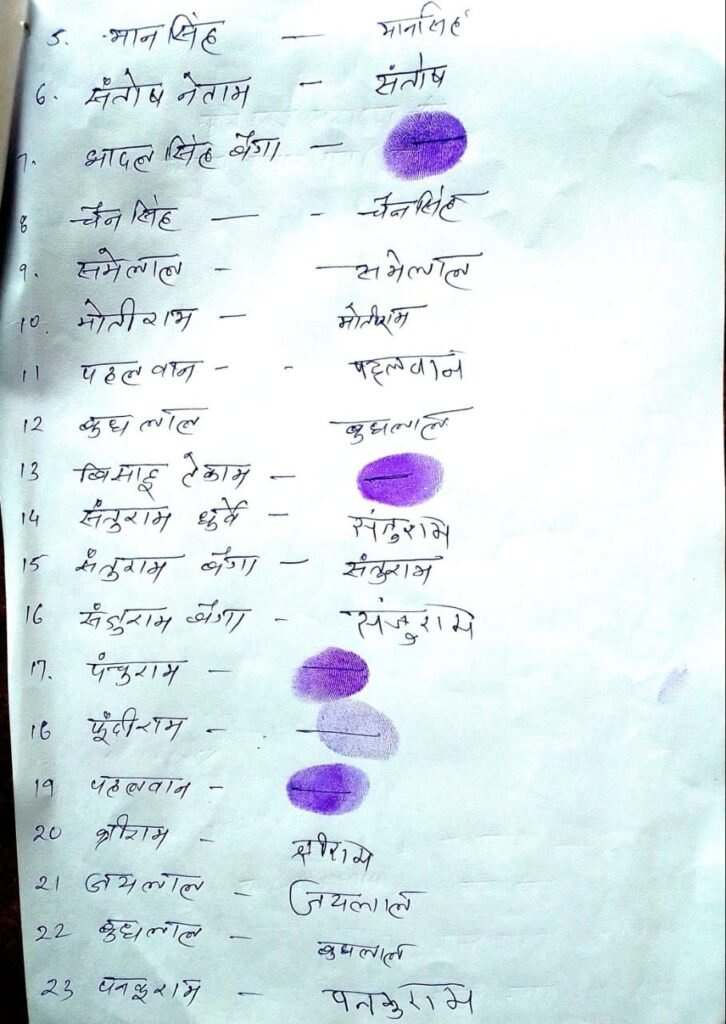 5. मानसिंह — मानसिंह
6. संतोष नेताम — संतोष
7. भादल सिंह बैगा —
8 चैनसिंह — - चैनसिंह
9. समेलाल - — समेलाल
10. मोतीराम — मोतीराम
11 पहलवान - - पहलवान
12 बुधलाल बुधलाल
13 बिसाहू टेकाम —
14 संतुराम धुर्वे — संतुराम
15 संतुराम बैगा — संतुराम
16 संजुराम बैगा — संजुराम
17. पंनकुराम —
18 फूंदीराम - .
19 पहलवान -
20 श्रीराम - श्रीराम
21 जयलाल — जयलाल
22 बुधलाल — बुधलाल
23 पनकूराम — पनकुराम